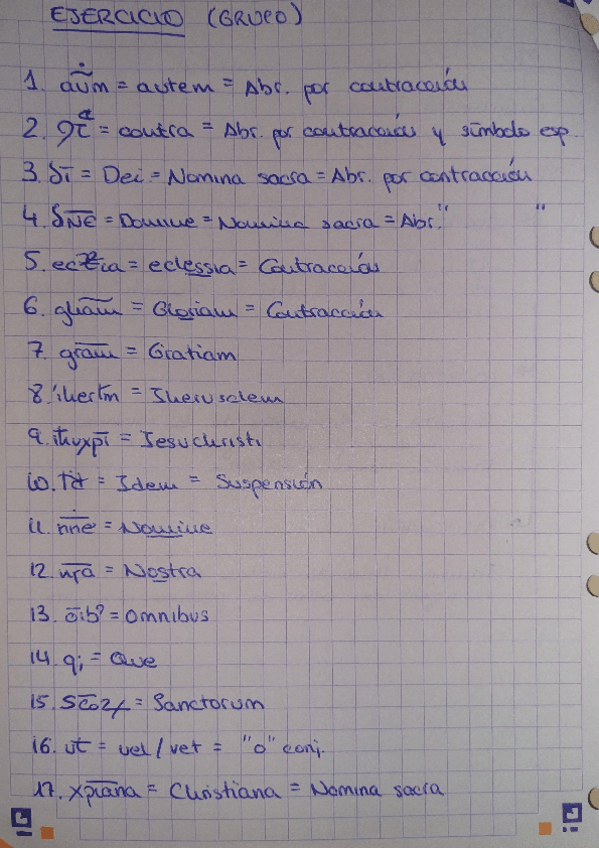 EJERCICIO (GRUPO)
1. aũm = autem = Abr. por contracción
2. 9t̄ᵃ = contra = Abr. por contracción y símbolo esp.
3. δī = Dei = Nomina sacra = Abr. por contracción
4. δN̄Ē = Domine = Nomina sacra = Abr. " "
5. = eclessia = Contracción
6. = Gloriam = Contracción
7. gr̄ām = Gratiam
8. = Iherusalem
9. = Jesuchristi
10. = Idem = Suspensión
11. n̄n̄ē = Nomine
12. n̄r̄ā = Nostra
13. ōib9 = Omnibus
14. q; = Que
15. = Sanctorum
16. = vel / vet = "o" conj.
17. xp̄īāna = Christiana = Nomina sacra